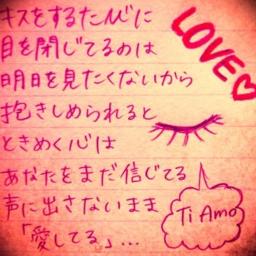 キスをするたんびに
目を閉じてるのは
明日を見たくないから
抱きしめられると
ときめく心は
あなたをまだ信じてる
声に出さないまま
「愛してる」…
LOVE♡
Ti Amo